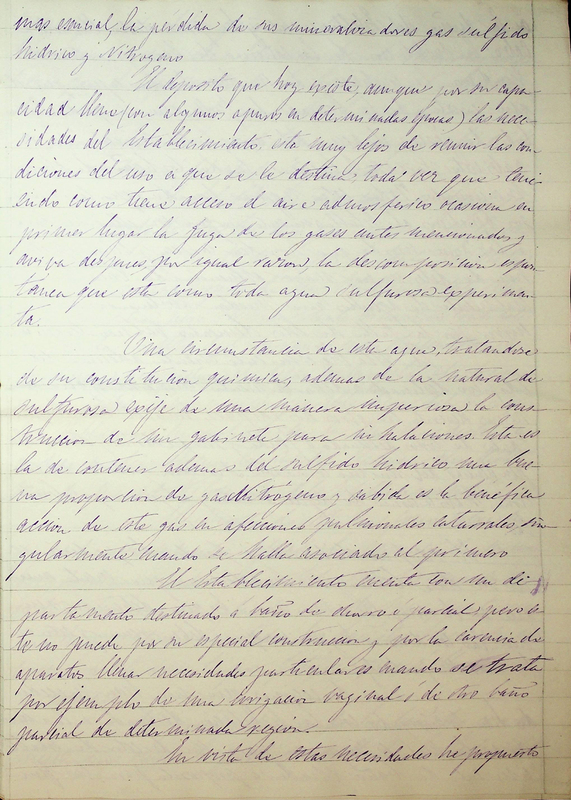 mas esencial, la pérdida de sus mineralizadores gas sulfido
hidrico y Nitrogeno
El deposito que hoy existe, aunque por su capa-
cidad llena (con algunos apuros en determinadas épocas) las nece-
sidades del Establecimiento, esta muy lejos de reunir las con-
diciones del uso a que se le destina, toda vez que teni-
endo como tiene acceso el aire admosferico ocasiona en
primer lugar la fuga de los gases antes mencionados, y
aviva despues, por igual razon, la descomposicion espon-
tanea que esta como toda agua sulfurosa experimen-
ta.
Una circunstancia de este agua, tratandose
de su constitucion quimica, ademas de la natural de
sulfurosa exije de una manera imperiosa la cons-
truccion de un gabinete para inhalaciones. Esta es
la de contener ademas del sulfido hidrico una bue-
na proporcion de gas Nitrógeno y sabida es la benéfica
accion de este gas en afecciones pulmonales catarrales, sin-
gularmente cuando se halla asociado al primero
El Establecimiento cuenta con un de-
partamento destinado a baño de chorro parcial; pero es-
te no puede por su especial construccion y por la carencia de
aparatos llenar necesidades particulares cuando se trata
por ejemplo de una irrigacion vaginal o de otro baño
parcial de determinada region.
En vista de estas necesidades he propuesto